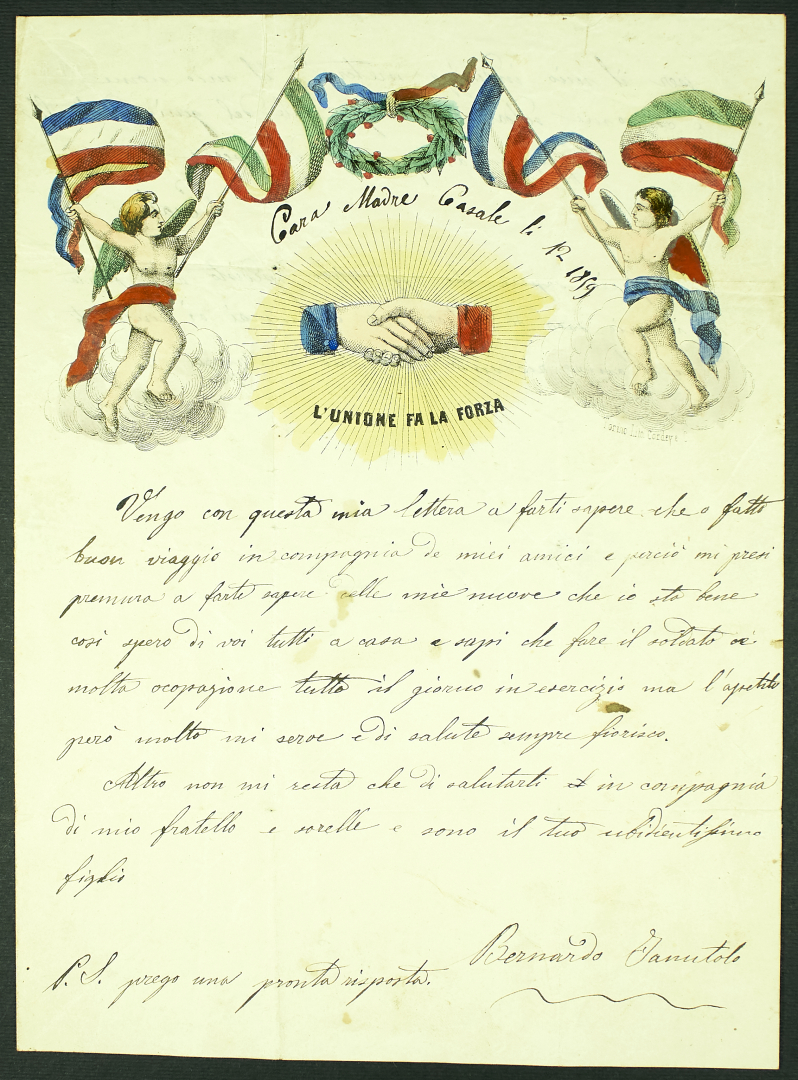 Cara Madre Casale li 12 1859
L'UNIONE FA LA FORZA
Vengo con questa mia lettera a farti sapere che o fatto
buon viaggio in compagnia de miei amici e perciò mi presi
premura a farti sapere delle mie nuove che io sto bene
così spero di voi tutti a casa e sapi che fare il soldato è
molta ocopazione tutto il giorno in esercizio ma l'apetito
però molto mi serve e di salute sempre fiorisco.
Altro non mi resta che di salutarti in compagnia
di mio fratello e sorelle e sono il tuo ubidientissimo
figlio
Bernardo
P. S. prego una pronta risposta.